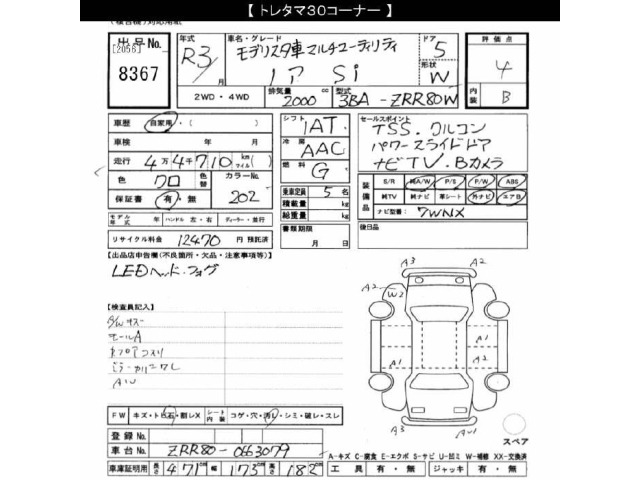 【 トレタマ30コーナー 】
出品No.
[2056]
8367
年式 R3 年 月
車名・グレード モデリスタ車マルチユーティリティ
ノア Si
ドア 5
形状 W
2WD・4WD
排気量 2000 cc
型式 3BA-ZRR80W
評価点 4
内装 B
車歴 自家用・( )
車検 年 月
走行 4万4千710 km マイル ( )
色 クロ 色替 カラーNo. 202
保証書 有・無
モデル年式 年 ハンドル 左・右 ディーラー・並行
リサイクル料金 12470 円 預託済
シフト IAT
冷房 AAC
燃料 G
乗車定員 5 名
積載量 kg
総重量 kg
書類期限
月 日
セールスポイント
TSS. クルコン
パワースライドドア
ナビTV. Bカメラ
装備品
S/R A/W P/S P/W ABS
純TV 純ナビ 革シート 外ナビ エアB
ナビ型番: 7WNX
後日品
【出品店申告欄(不良箇所・欠品・注意事項等)】
LEDヘッド.フォグ
【検査員記入】
モールA
A/W
FW キズ・トビ石・割レX シート内装 コゲ・穴・汚レ・シミ・破レ・スレ
登録No.
車台No. ZRR80-0663079
車庫証明用 長さ 471cm 幅 173cm 高さ 182cm
A3
A2
W2
A2
A1
A2
A1
A3
スペア
A-キズ C-腐食 E-エクボ S-サビ U-凹ミ W-補修 XX-交換済
工具 有・無 ジャッキ 有・無